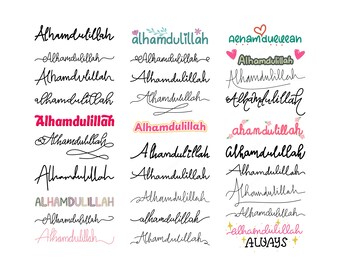 Alhamdulillah
Alhamdulillah
Alhamdulillah
alhamdulillah
Alhamdulillah
Alhamdulillah
Alhamdulillah
ALHAMDULILLAH
Alhamdulillah
Alhamdulillah
alhamdulillah
alhamdulillah
Alhamdulillah
Alhamdulillah
Alhamdulillah
Alhamdulillah
Alhamdulillah
Alhamdulillah
alhamdulillah
Alhamdulillah
alhamdulillah
Alhamdulillah
Alhamdulillah
Alhamdulillah
alhamdulillah
Alhamdulillah
Alhamdulillah
Alhamdulillah
Alhamdulillah
alhamdulillah
ALWAYS